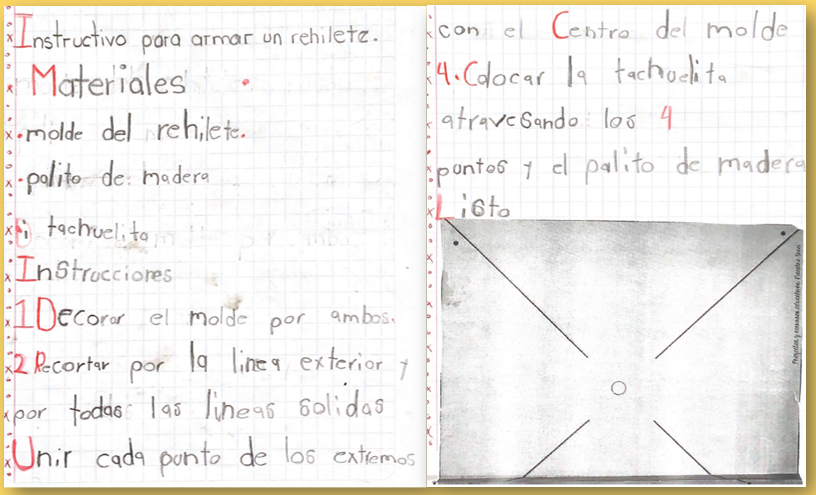 Instructivo para armar un rehilete.
Materiales
• molde del rehilete.
• palito de madera
tachuelita
Instrucciones
1 Decorar el molde por ambos.
2 Recortar por la linea exterior y
por todas las lineas solidas
Unir cada punto de los extremos
con el Centro del molde
4. Colocar la tachuelita
atravesando los 4
puntos y el palito de madera
Listo